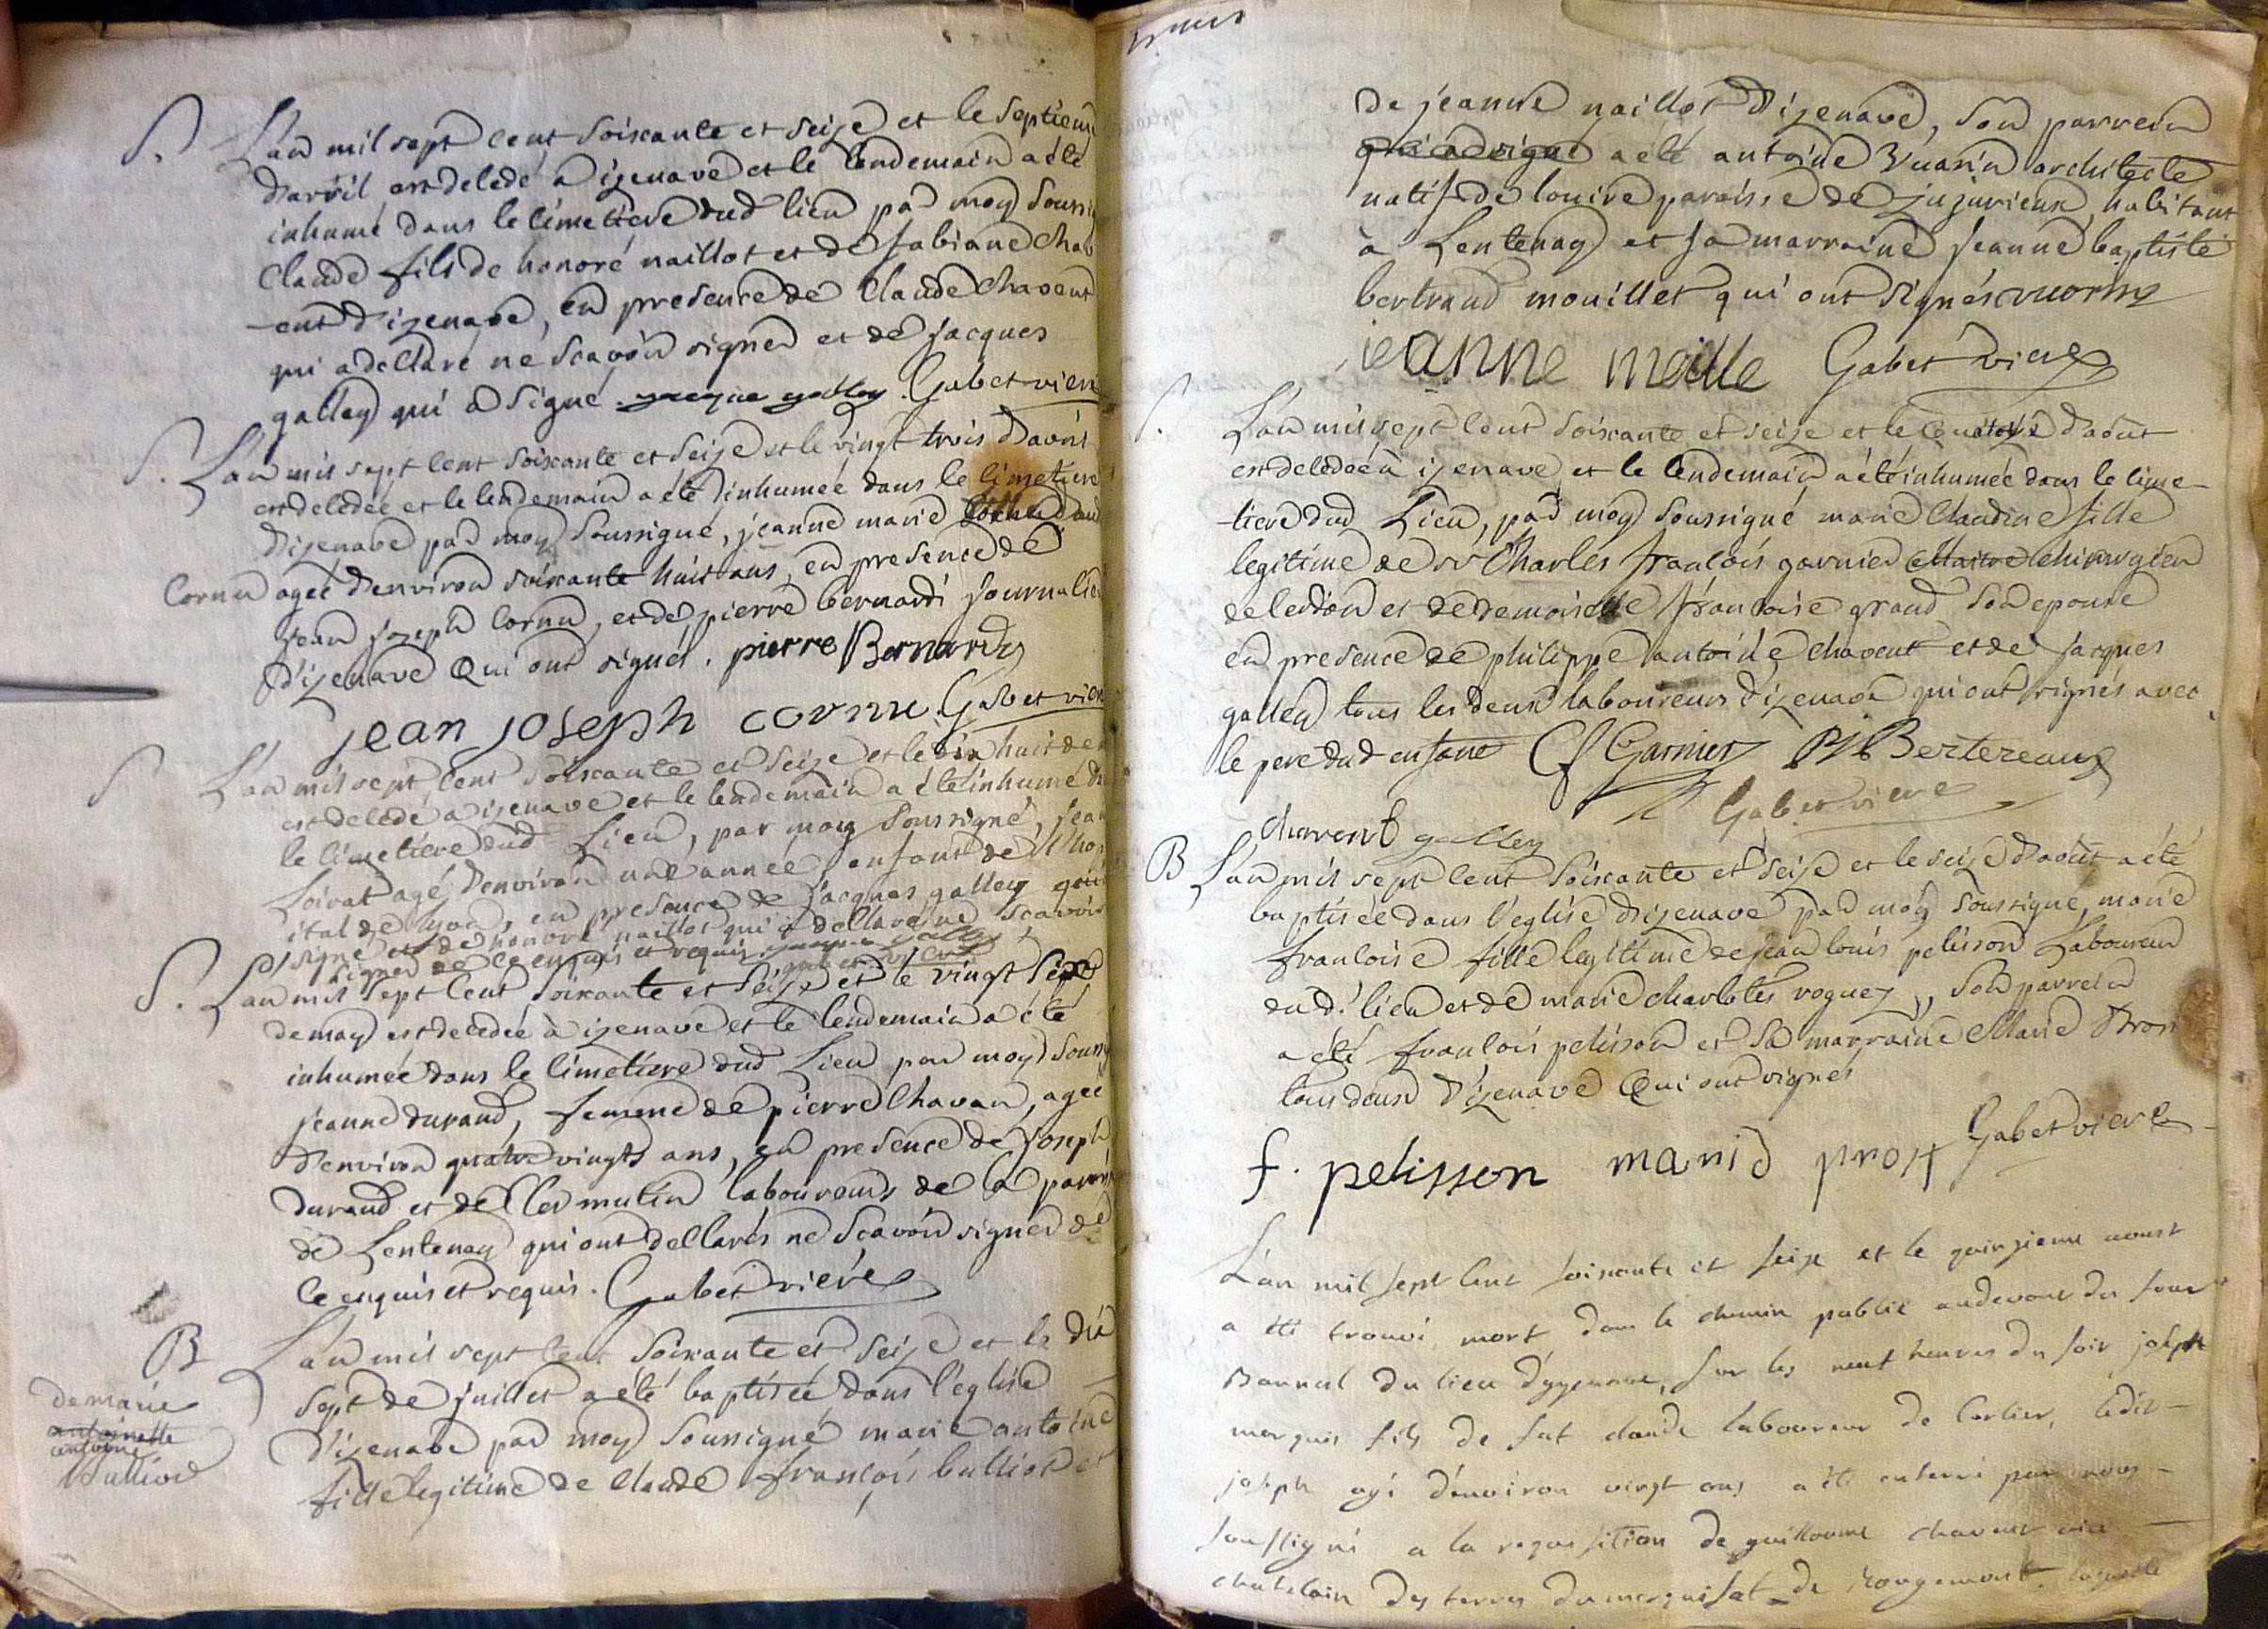 S. L'an mil sept cent soixante et seize et le septieme
d'avril est decedé a izenave et le lendemain a été
inhumé dans le cimetiere dud lieu par moy soussig
claude fils de honoré naillot et de fabiane chav
-ent d'izenave, en presence de claude chavent
qui a declaré ne scavoir signer et de jacques
galley qui a signé. jacque galley. Gabet viere
S. L'an mil sept cent soixante et seize et le vingt trois d'avril
est decedée et le lendemain a été inhumée dans le cimetiere
d'izenave par moy soussigné, jeanne marie
cornu agée d'environ soixante huit ans, en presence de
jean joseph cornu, et de pierre bernardi journalier
d'izenave qui ont signés. pierre Bernardy
jean joseph cornu Gabet viere
S L'an mil sept cent soixante et seize et le dix huit de
est decedé a izenave et le lendemain a été inhumé d
le cimetiere dud Lieu, par moy soussigné, jean
Loirat agé d'environ une année, enfant de l'hop
ital de lyon, en presence de jacques galley qui
a signé et de honoré naillot qui a declaré ne scavoir
signer de ce enquis et requis. jacque galley
gabet viere
S. L'an mil sept cent soixante et seize et le vingt sept
de may est decedée à izenave et le lendemain a été
inhumée dans le cimetiere dud Lieu par moy soussig
jeanne durand, femme de pierre chavan, agée
d'environ quatre vingts ans, en presence de joseph
durand et de clermutin laboureurs de la paroi
de Lentenay qui ont declarés ne scavoir signer de
ce enquis et requis. Gabet viere
B L'an mil sept cent soixante et seize et le dix
sept de juillet a été baptisée dans l'eglise
d'izenave par moy soussigné marie antoine
fille legitime de claude françois bulliod et
de marie
antoinette
antoine
bulliod
de jeanne naillot d'izenave, son parrein
qui a signé a été antoine Vuarin architecte
natif de louire paroisse de jujurieux, habitant
à Lentenay et sa marraine jeanne baptiste
bertrand mouillet qui ont signés vuarin
jeanne meille Gabet viere
S. L'an mil sept cent soixante et seize et le quatorze d'aout
est decedée à izenave et le lendemain a été inhumée dans le cime-
tiere dud Lieu, par moy soussigné marie claudine fille
legitime de sr Charles françois garnier Maitre chirurgien
de cerdon et de demoiselle françoise grand son epouse
en presence de philippe antoine chavent et de jacques
galley tous les deux laboureurs d'izenave qui ont signés avec
le pere dud enfant Cf Garnier Bertereaux
chavent galley Gabet viere
B L'an mil sept cent soixante et seize et le seize d'aout a été
baptisée dans l'eglise d'izenave par moy soussigné, marie
françoise fille legitime de jean louis pelisson Laboureur
dud. lieu et de marie charlotes roguez, son parrein
a été françois pelisson et sa marraine Marie Pros
tous deux d'izenave qui ont signés
f. pelisson marie prost Gabet viere
L'an mil sept cent soixante et seize et le quinzieme aoust
a été trouvé mort dans le chemin public audevant du four
Bannal du lieu d'yzenave, sur les neuf heures du soir joseph
marquis fils de fut claude laboureur de corlier, ledit
joseph agé d'environ vingt ans a été enterré par nous
soussigné a la requisition de guillaume chavent vice
chatelain des terres du marquisat de Rougemont laquelle